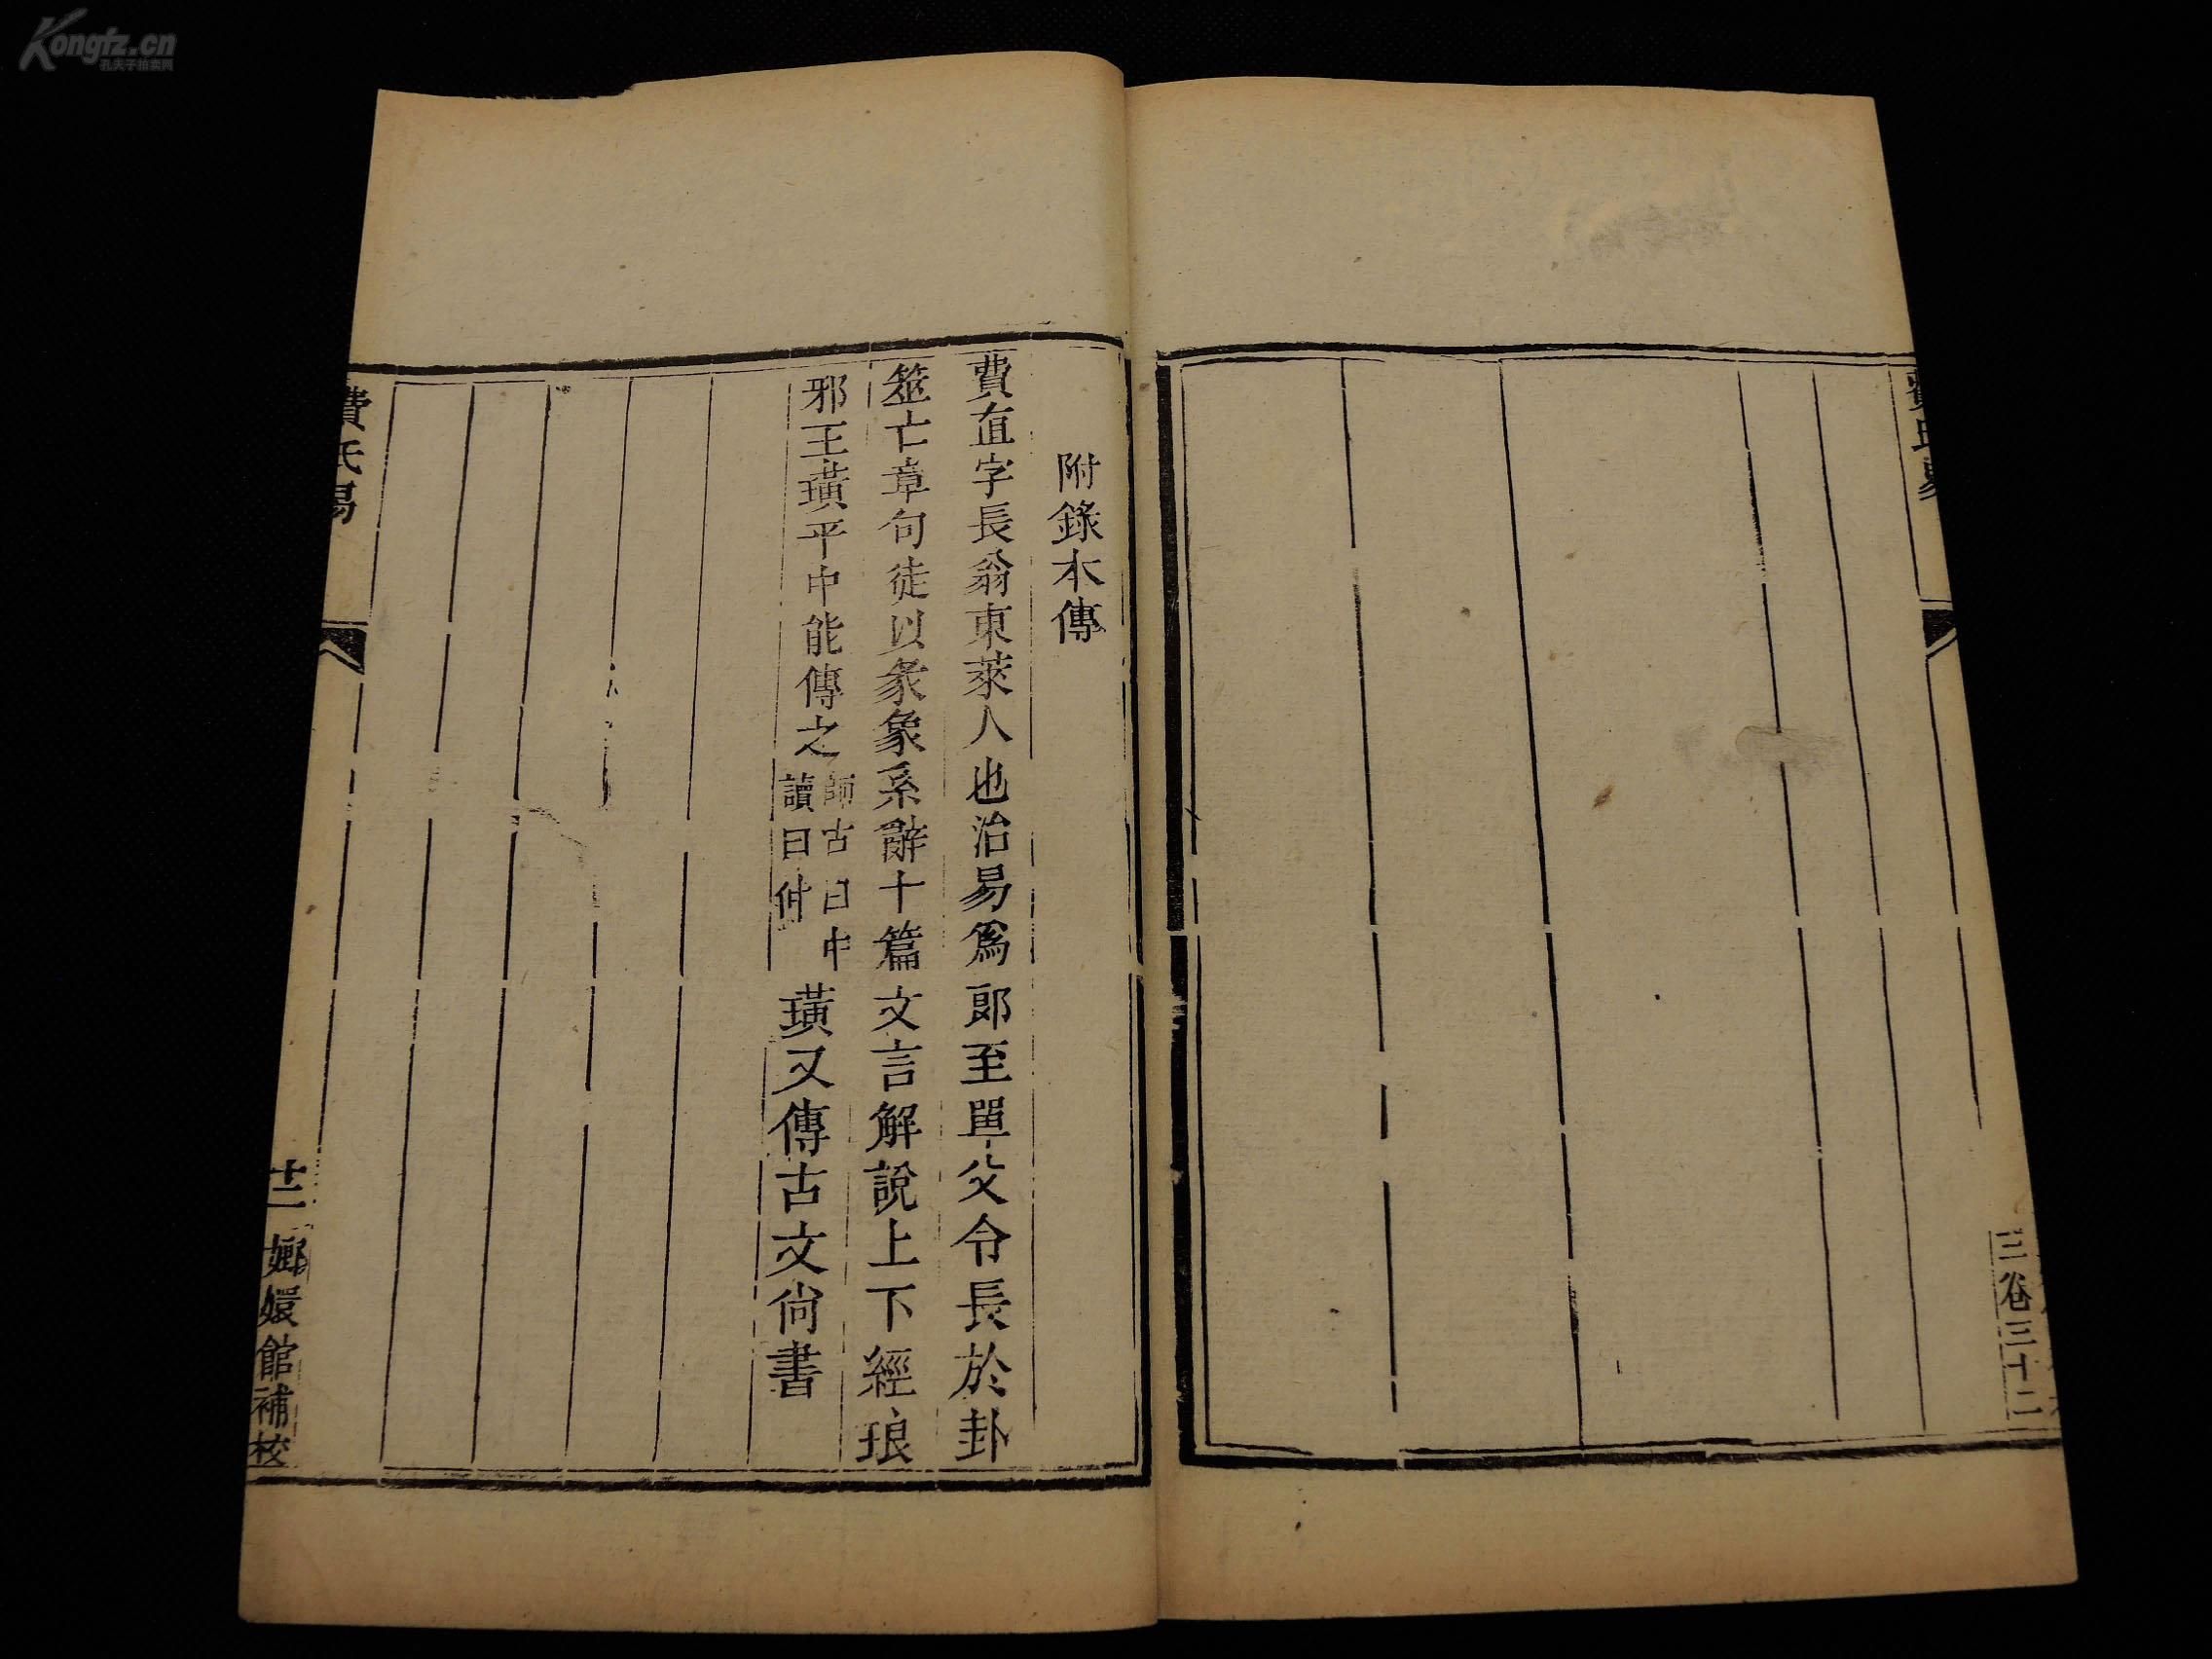 Kongfz.cn
孔夫子拍卖网
三卷三十二
附錄本傳
費直字長翁東萊人也治易爲郎至單父令長於卦
筮亡章句徒以彖象系辭十篇文言解說上下經琅
邪王璜平中能傳之
師古曰中
讀曰仲
璜又傳古文尙書
費氏易
廿二
嫏嬛館補校